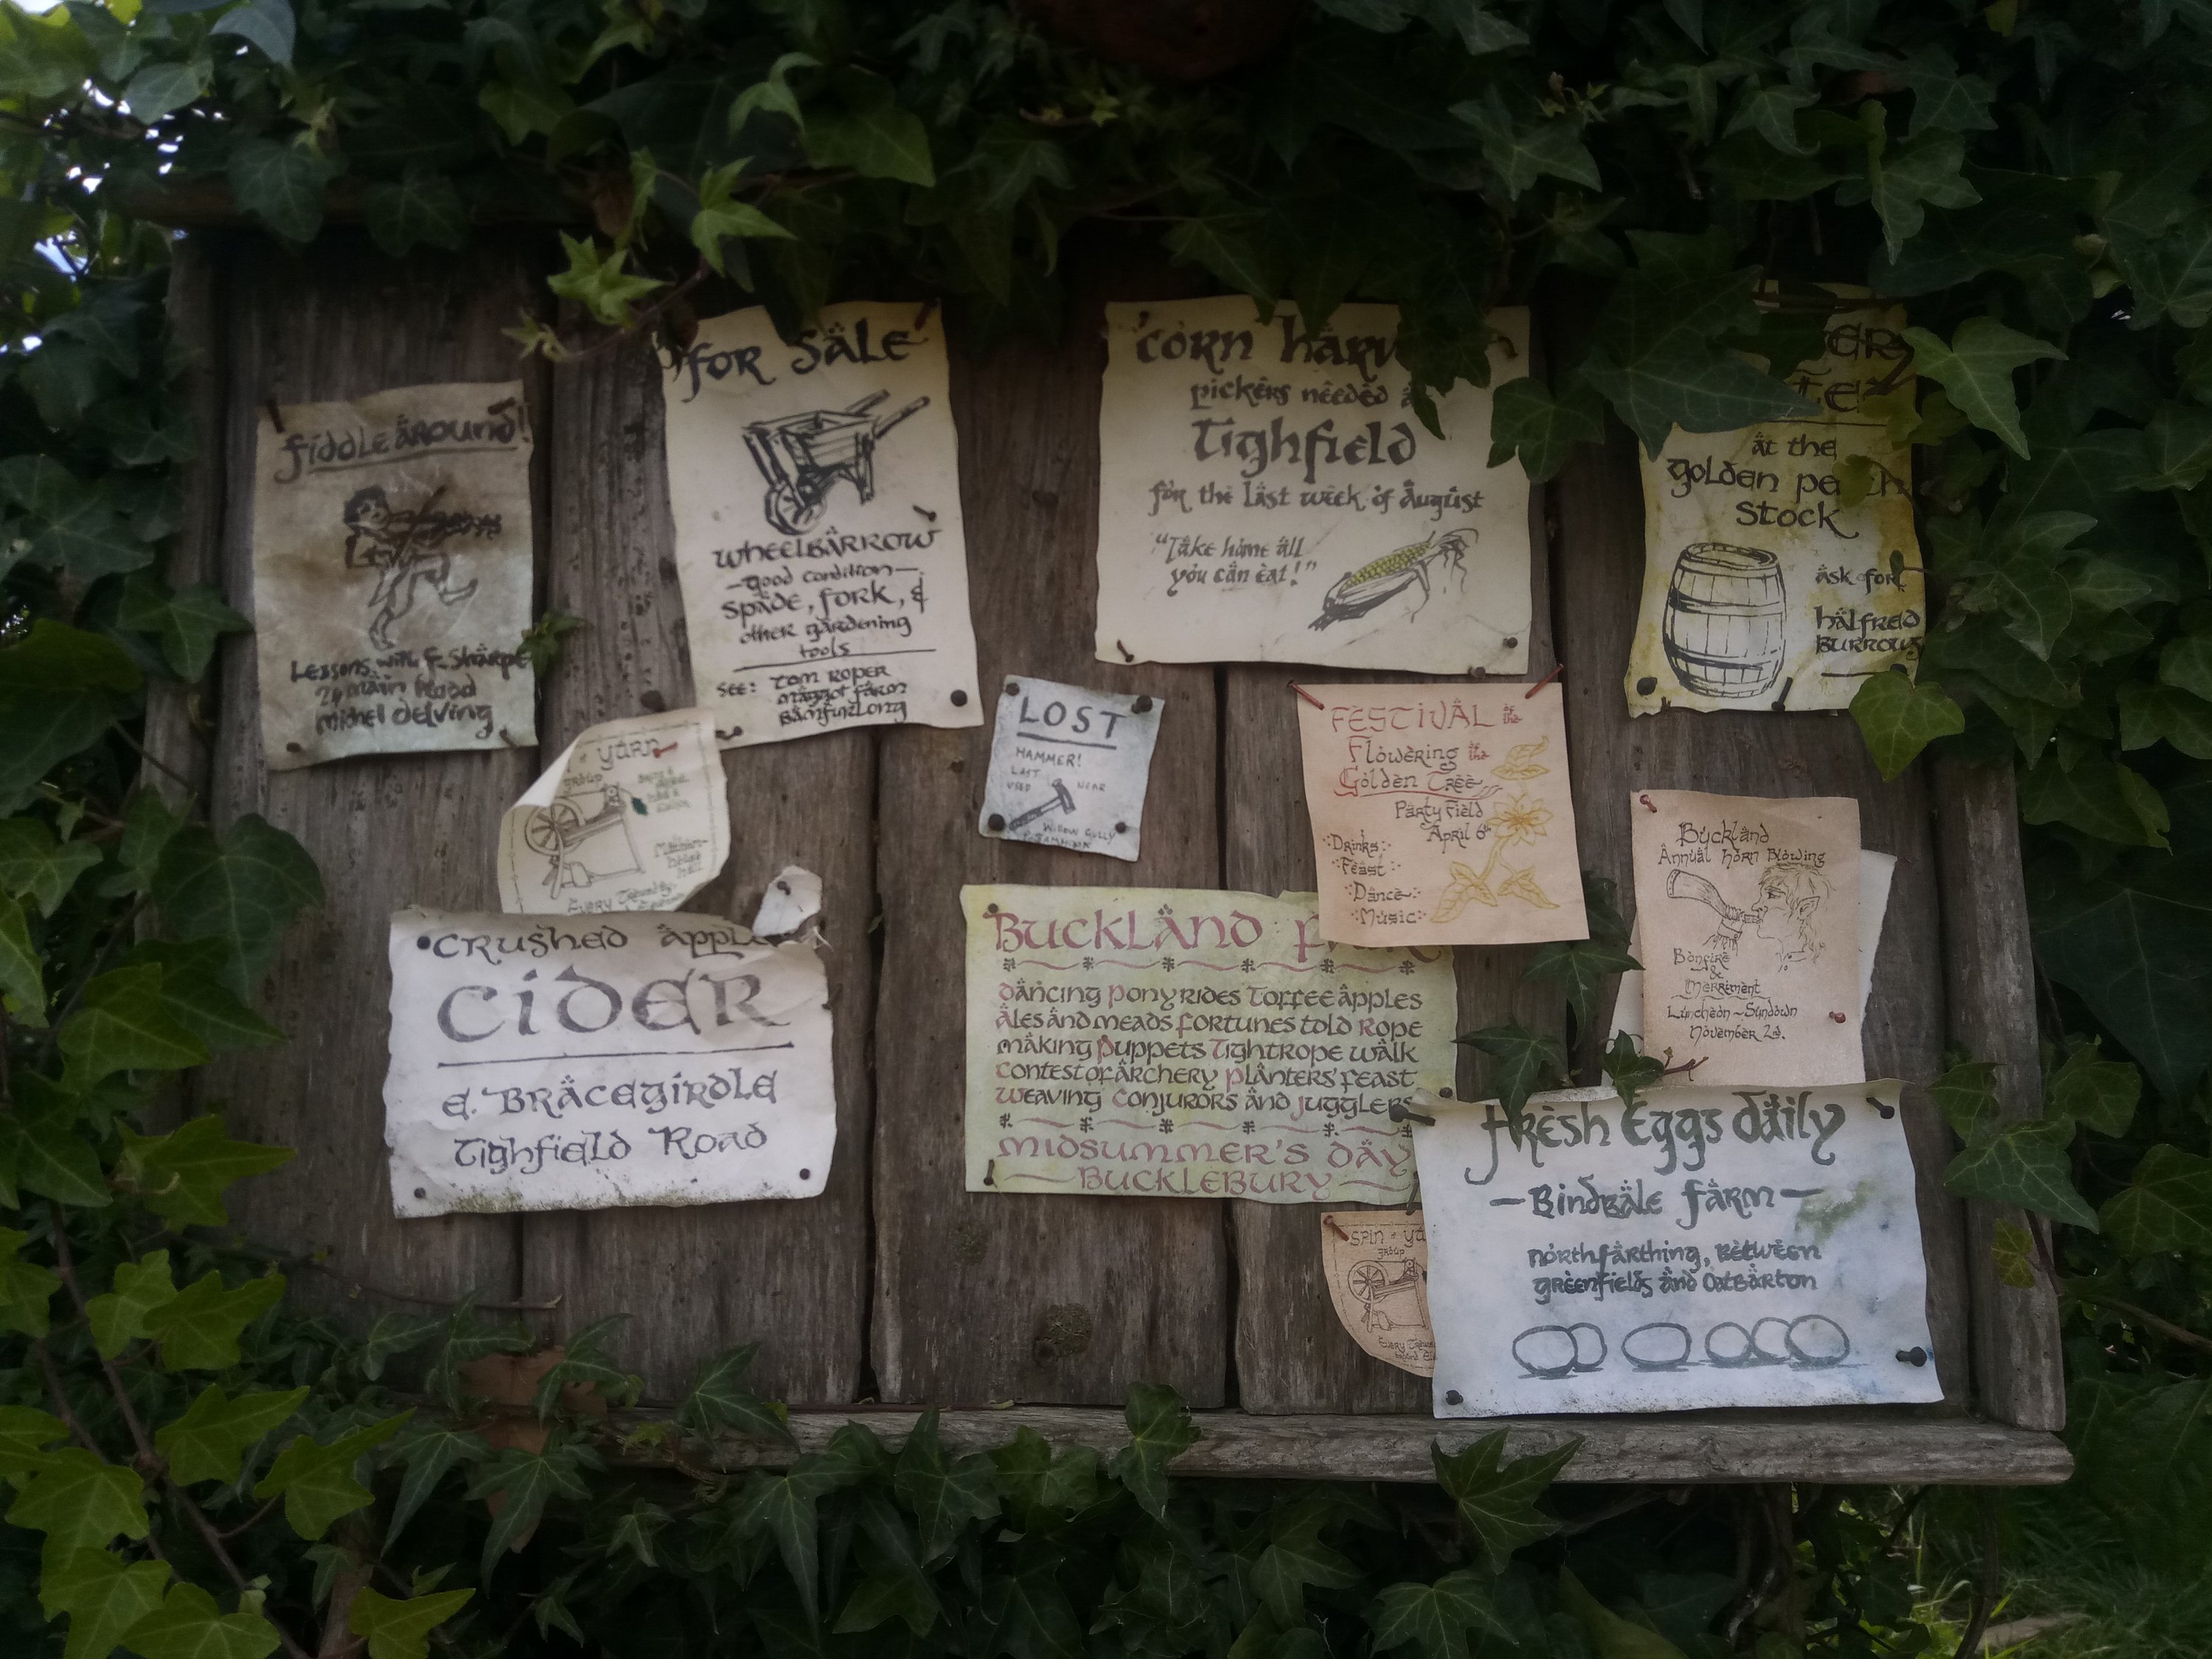 fiddle around!
Lessons with F. Sharpe
Main Road
Michel Delving
for sale
wheelbarrow
-good condition-
spade, fork, &
other gardening
tools
see: Tom Roper
Maggot Farm
Bamfurlong
corn harv
pickers needed
Tighfield
for the last week of August
"Take home all
you can eat!"
at the
golden pe ch
stock
ask for
halfred
Burrows
yarn
group
Every
LOST
HAMMER!
LAST
USED NEAR
FESTIVAL of the
Flowering of the
Golden Tree
Party Field
April 6th
Drinks
Feast
Dance
Music
Buckland
Annual Horn Blowing
Bonfire
&
Merriment
Luncheon ~ Sundown
November 2d.
crushed apple
cider
E. Bracegirdle
Tighfield Road
Buckland
Dancing Pony rides Toffee apples
Ales and meads Fortunes told Rope
making Puppets Tightrope walk
Contest of archery Planters' feast
Weaving Conjurors and Jugglers
Midsummer's Day
— Bucklebury —
fresh Eggs daily
— Bindbale farm —
northfarthing, between
greenfields and Oatbarton
Spin a ya
group
Every